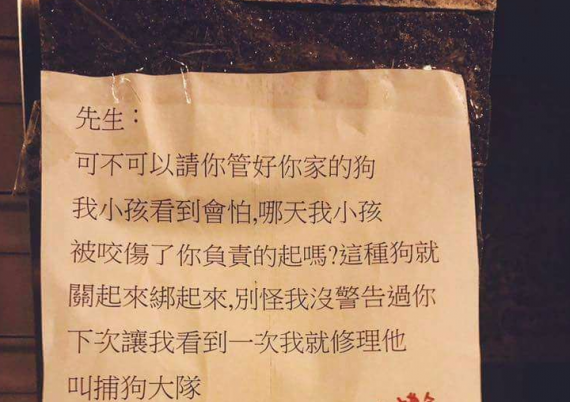 先生：
可不可以請你管好你家的狗
我小孩看到會怕,哪天我小孩
被咬傷了你負責的起嗎?這種狗就
關起來綁起來,別怪我沒警告過你
下次讓我看到一次我就修理他
叫捕狗大隊